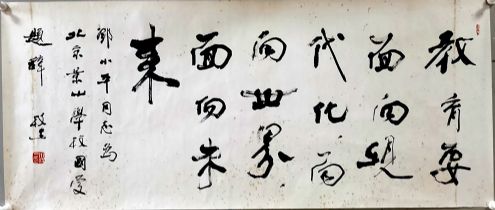 教育要
面向现
代化面
向世界
面向未
来
邓小平同志为
北京景山学校国庆
题辞